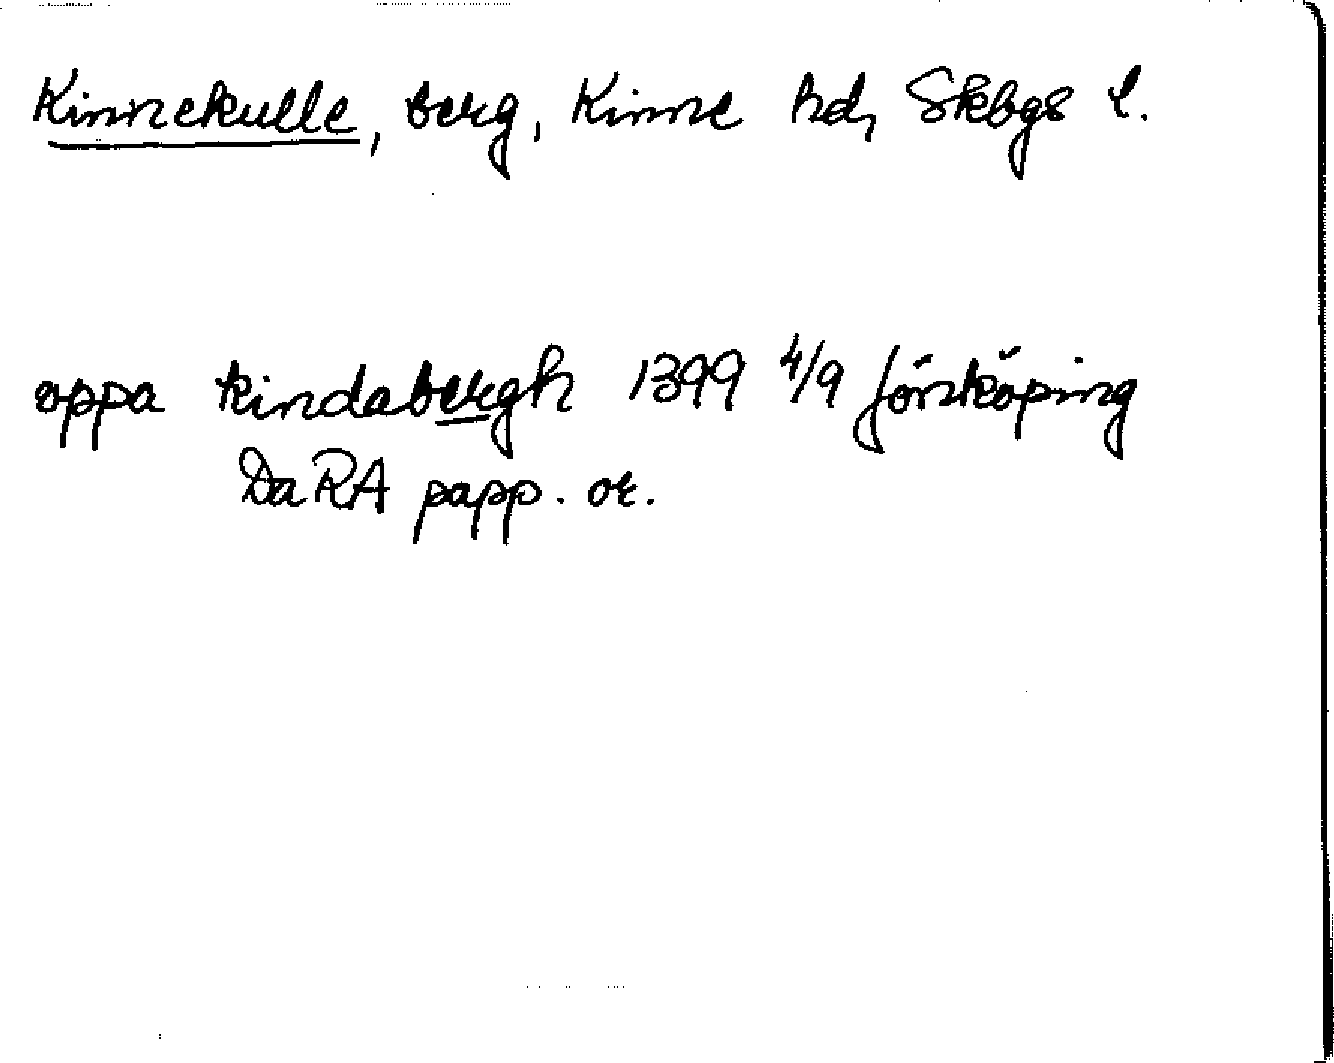 Kinnekulle, berg, Kinne hd, Skbgs l.
oppa kindabergh 1399 4/9 Jönköping
DaRA papp. or.